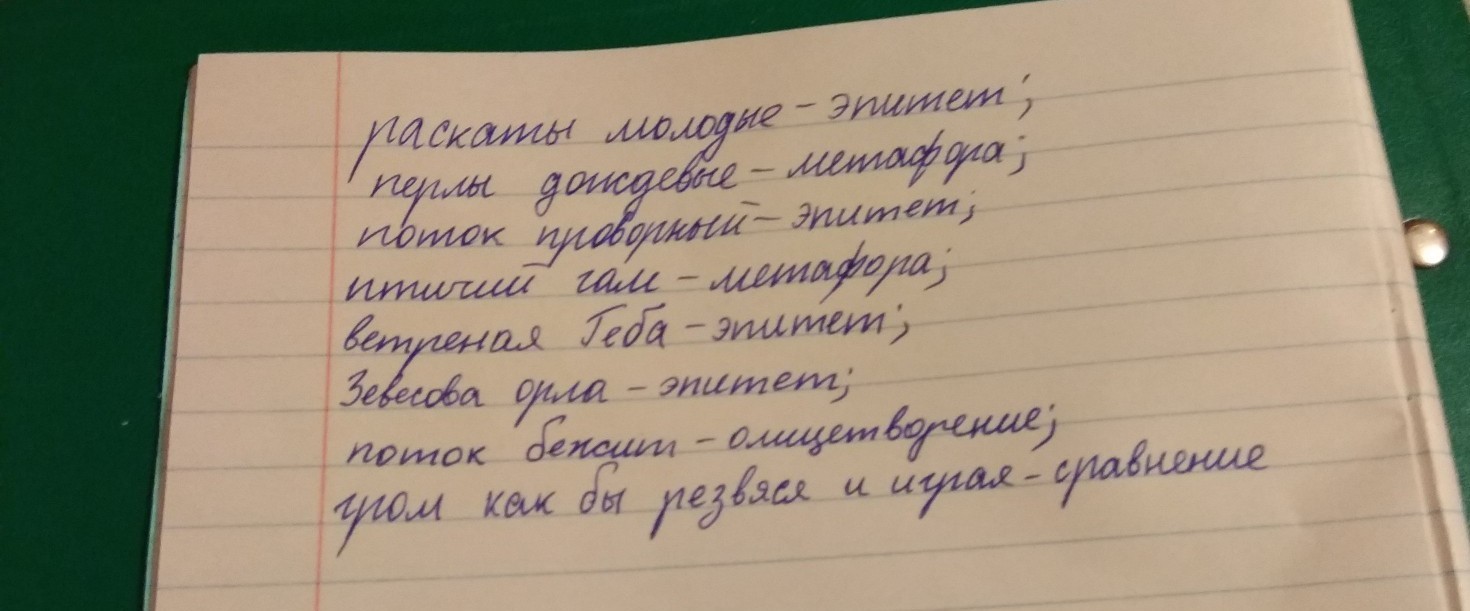 раскаты молодые – эпитет;
перлы дождевые – метафора;
поток проворный – эпитет;
птичий гам – метафора;
ветреная Геба – эпитет;
Зевесова орла – эпитет;
поток бежит – олицетворение;
гром как бы резвяся и играя – сравнение